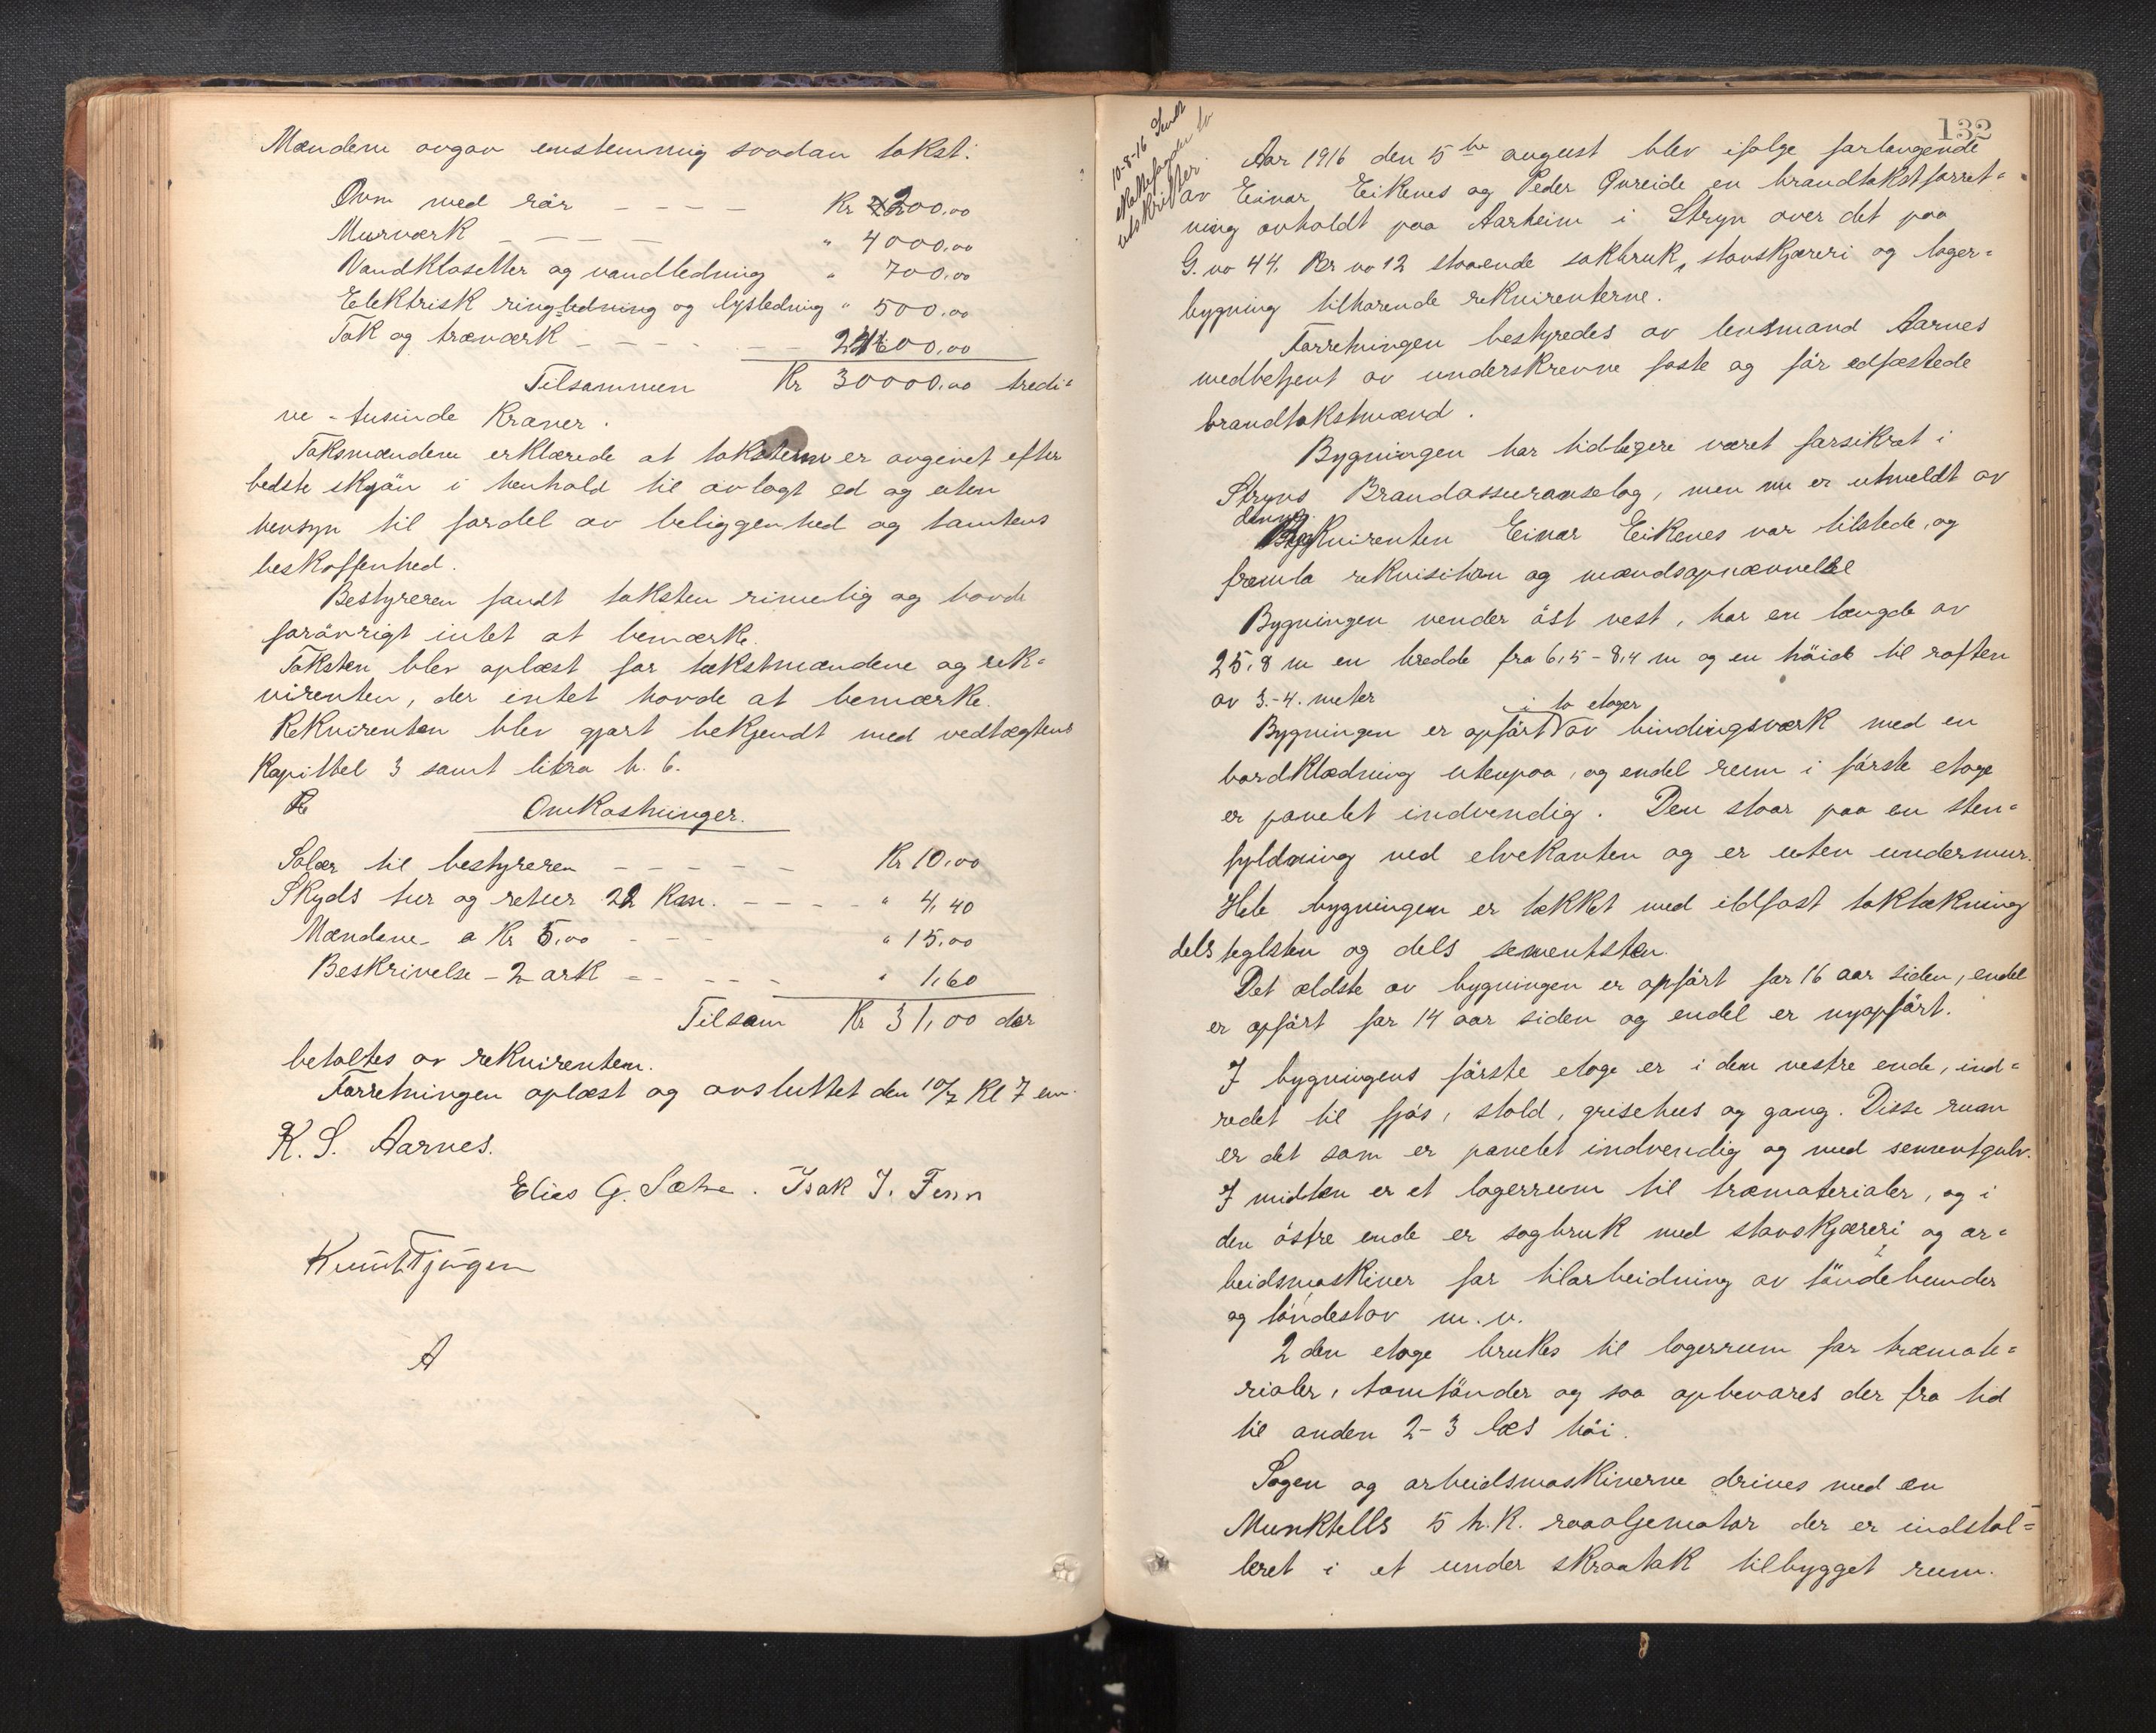 Mændene avgav enstemmig saadan takst:
Ovn med rör - - - - Kr 200.00
Murværk - - - - " 4000.00
Vandklosetter og vandledning " 700.00
Elektrisk ringledning og lysledning " 500.00
Tak og træværk - - - - - 24600.00
Tilsammen Kr 30000.00 tredi-
ve - tusinde Kroner.
Taksmændene erklærede at taksten er avgivet efter
bedste skjön i henhold til avlagt ed og uten
hensyn til fordel av beliggenhed og tomtens
beskaffenhed.
Bestyreren fandt taksten rimelig og havde
forövrigt intet at bemærke.
Taksten blev oplæst for takstmændene og rek-
virenten, der intet havde at bemærke.
Rekvirenten blev gjort bekjendt med vedtægtens
Kapittel 3 samt litra h. 6.
R Omkostninger.
Salær til bestyreren - - - - - Kr 10.00
Skyds tur og retur 22 Km. - - - - " 4,40
Mændene a Kr 5.00 - - - " 15.00
Beskrivelse - 2 ark - - - - - " 1,60
Tilsam Kr 31,00 der
betaltes av rekvirenten.
Forretningen oplæst og avsluttet den 10/7 Kl 7 em.
K. S. Aarnes.
Elias G. Sætre. Isak J. Fenn
Knut Tjugen
A
132
10-8-16 Sendt
utskrifter.
Aar 1916 den 5te august blev ifölge forlangende
av Einar Eikenes og Peder Qvreide en brandtakstforret-
ning avholdt paa Aarheim i Stryn over det paa
G. no 44. Br no 12 staaende sakbruk, stavskjæreri og lager-
bygning tilhörende rekvirenterne.
Forretningen bestyredes av lensmand Aarnes
medbetjent av underskrevne faste og för edfæstede
brandtakstmænd.
Bygningen har tidligere været forsikret i
Stryns Brandassuranselag, men nu er utmeldt av
denne.
Rekvirenten Einar Eikenes var tilstede, og
fremla rekvisition og mændsopnævnelse
Bygningen vender öst vest, har en længde av
25,8 m en bredde fra 6,5 - 8,4 m og en höide til raften
av 3-4. meter
i to etager
Bygningen er opfört av bindingsværk med en
bordklædning utenpaa, og endel rum i förste etage
er panelet indvendig. Den staar paa en sten-
fyldning ved elvekanten og er uten undermur.
Hele bygningen er tækket med ildfast taktækning
dels teglsten og dels sementsten.
Det ældste av bygningen er opfört for 16 aar siden, endel
er opfört for 14 aar siden og endel er nyopfört.
I bygningens förste etage er i den vestre ende, ind-
redet til fjös, stald, grisehus og gang. Disse rum
er det som er panelet indvendig og med sementgulv.
I midten er et lagerrum til træmaterialer, og i
den östre ende er sagbruk med stavskjæreri og ar-
beidsmaskiner for tilarbeidning av töndebunder
og töndestav m. v.
2den etage brukes til lagerrum for træmate-
rialer, tomtönder og saa opbevares der fra tid
til anden 2-3 læs höi.
Sagen og arbeidsmaskinerne drives med en
Munktells 5 h.K. raaoljemotor der er indstal-
leret i et under skraatak tilbygget rum.